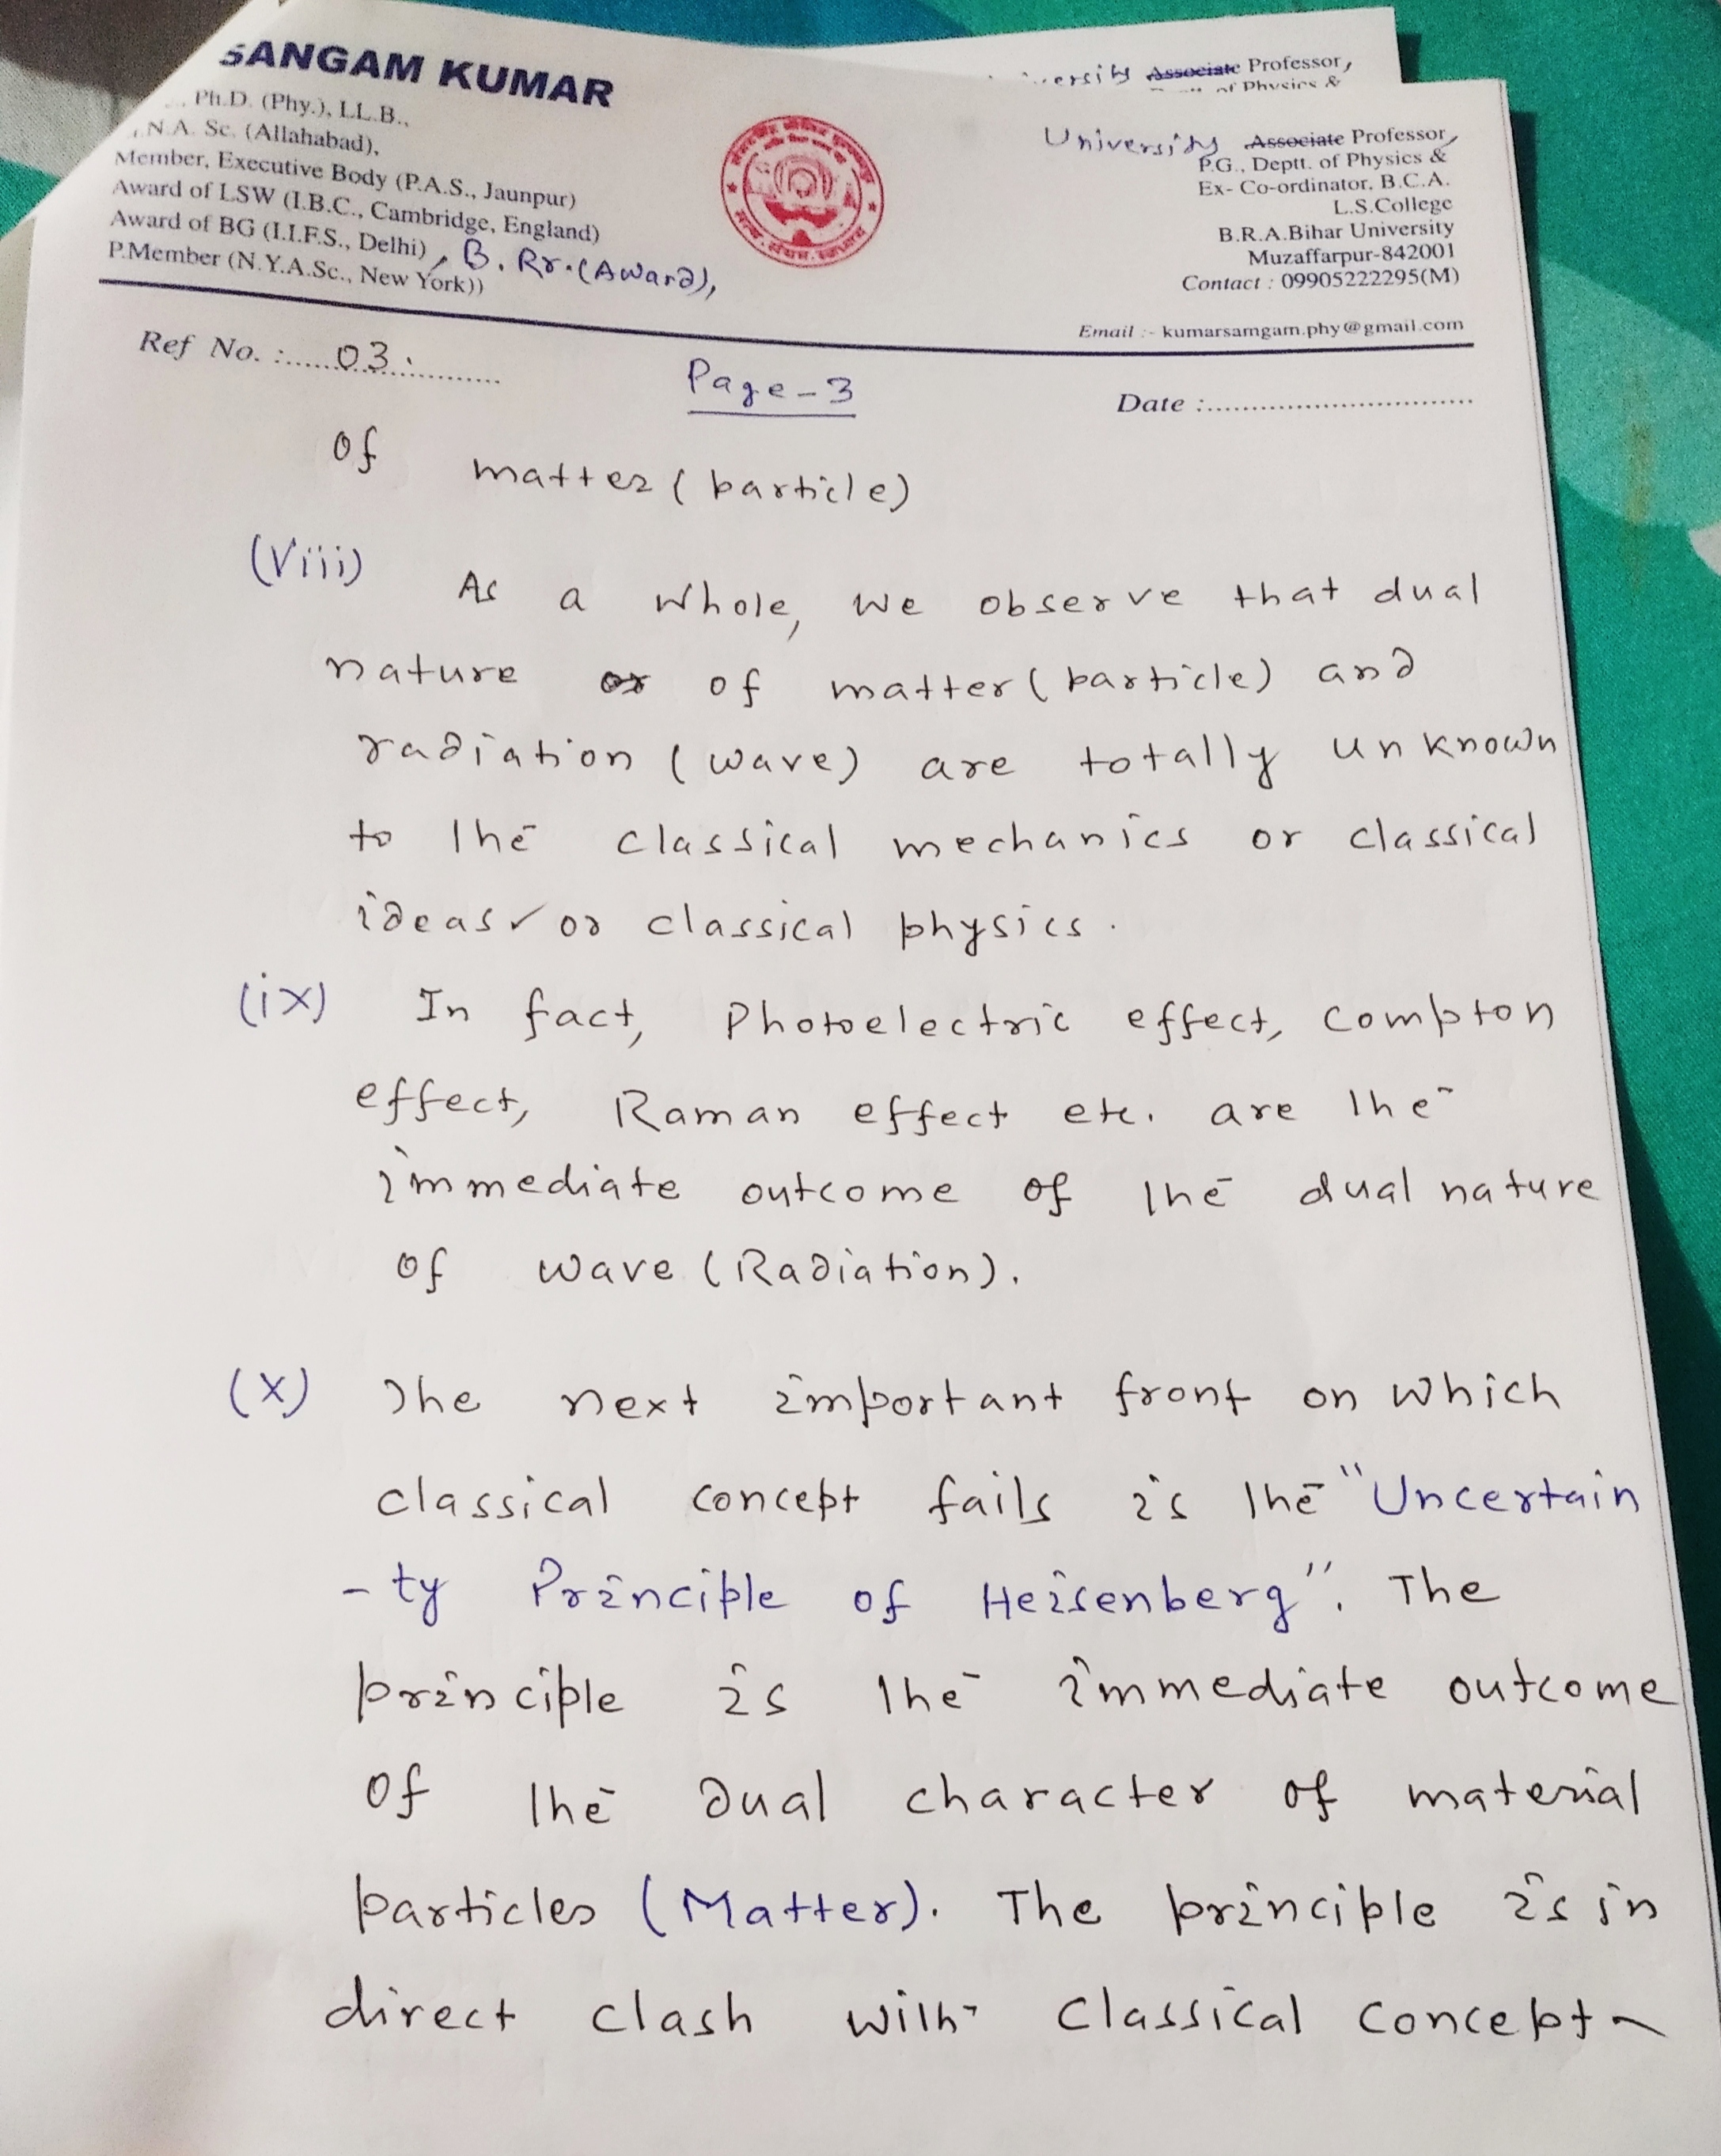 SANGAM KUMAR
Ph.D. (Phy.), LL.B.,
N.A. Sc. (Allahabad),
Member, Executive Body (P.A.S., Jaunpur)
Award of LSW (I.B.C., Cambridge, England)
Award of BG (I.I.F.S., Delhi), B. Rr. (Award),
P.Member (N.Y.A.Sc., New York))
versity Associate Professor,
of Physics &
University Associate Professor,
P.G., Deptt. of Physics &
Ex- Co-ordinator, B.C.A.
L.S.College
B.R.A.Bihar University
Muzaffarpur-842001
Contact : 09905222295(M)
Email :- kumarsamgam.phy@gmail.com
Ref No. :......03.............
Page-3
Date :................................
of matter (particle)
(viii) As a whole, we observe that dual
nature or of matter (particle) and
radiation (wave) are totally unknown
to the classical mechanics or classical
ideas or classical physics.
(ix) In fact, Photoelectric effect, Compton
effect, Raman effect etc. are the
immediate outcome of the dual nature
of wave (Radiation).
(x) The next important front on which
classical concept fails is the "Uncertain
-ty Principle of Heisenberg". The
principle is the immediate outcome
of the dual character of material
particles (Matter). The principle is in
direct clash with classical concept